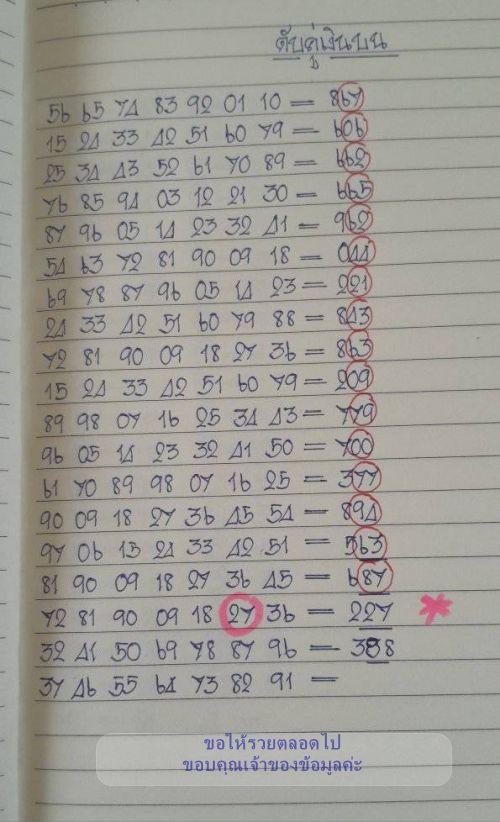 ดับคู่เงินบน
56 65 74 83 92 01 10 = 867
15 24 33 42 51 60 79 = 606
25 34 43 52 61 70 89 = 662
76 85 94 03 12 21 30 = 665
87 96 05 14 23 32 41 = 962
54 63 72 81 90 09 18 = 044
69 78 87 96 05 14 23 = 221
24 33 42 51 60 79 88 = 843
72 81 90 09 18 27 36 = 863
15 24 33 42 51 60 79 = 209
89 98 07 16 25 34 43 = 779
96 05 14 23 32 41 50 = 700
61 70 89 98 07 16 25 = 377
90 09 18 27 36 45 54 = 894
97 06 15 24 33 42 51 = 563
81 90 09 18 27 36 45 = 687
72 81 90 09 18 27 36 = 227 *
32 41 50 69 78 87 96 = 388
37 46 55 64 73 82 91 =
ขอให้รวยตลอดไป
ขอบคุณเจ้าของข้อมูลค่ะ